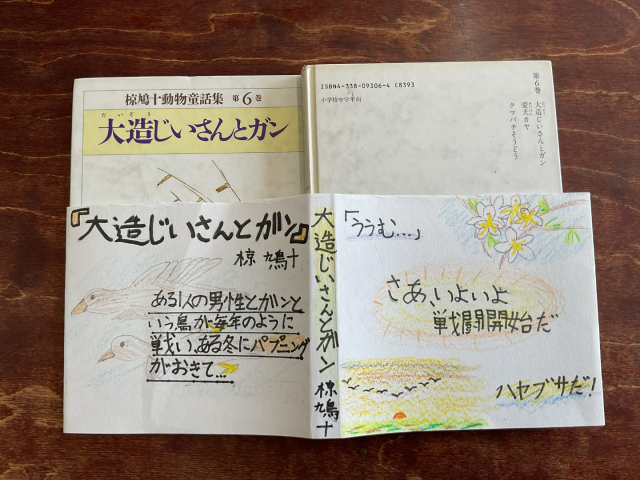 椋鳩十動物童話集 第6巻
だいぞう
大造じいさんとガン
ISBN4-338-09306-4 C8393
小学校中学年向
第6巻
大造じいさんとガン
愛犬カヤ
クマバチそうどう
『大造じいさんとガン』
椋 鳩十
ある1人の男性とガンと
いう鳥が毎年のように
戦い、ある冬にハプニング
がおきて…
大造じいさんとガン 椋 鳩十
「ううむ…」
さあ、いよいよ
戦闘開始だ
ハヤブサだ!